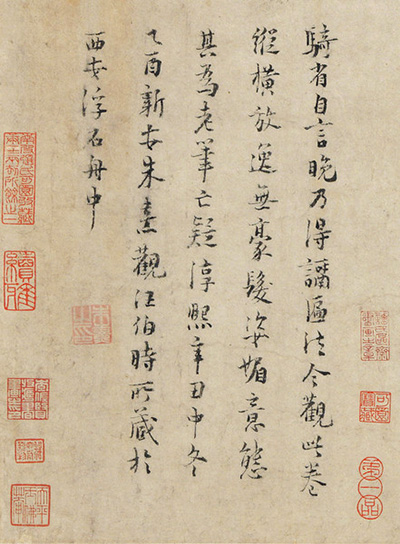 騎省自言晚乃得䛒匾法今觀此卷
縱橫放逸無豪髮姿媚意態
其為老筆亡疑淳熙辛丑中冬
乙酉新安朱熹觀汪伯時所藏於
西安浮石舟中